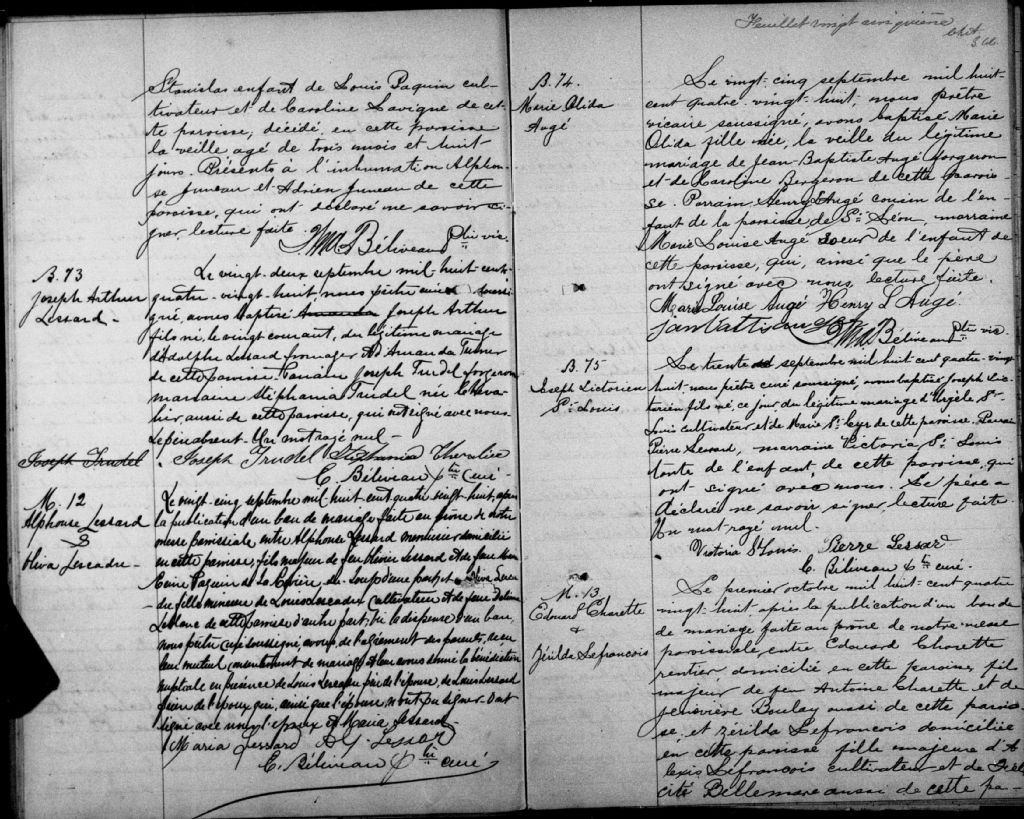 Stanislas enfant de Louis Paquin cul-
tivateur et de Caroline Lavigne de cet-
te paroisse, décédé, en cette paroisse
la veille agé de trois mois et huit
jours. Présents à l'inhumation Alphon-
se Juneau et Adrien Juneau de cette
paroisse, qui ont déclaré ne savoir si-
gner, lecture faite.
Béliveau Ptre vic.
B. 73
Joseph Arthur
Lessard -
Le vingt-deux septembre mil-huit-cent-
quatre-vingt-huit, nous prêtre curé soussi-
gné, avons baptisé Joseph Arthur
fils né, le vingt courant, du légitime mariage
d'Adolphe Lessard fromager et d'Amanda Turner
de cette paroisse. Parrain Joseph Trudel forgeron
marraine Stéphanie Trudel née Cheva-
lier, aussi de cette paroisse, qui ont signé avec nous
Le père absent. Un mot rayé nul -
Joseph Trudel
Joseph Trudel Stéphanie Chevalier
E. Béliveau Ptre curé
M. 12
Alphonse Lessard
&
Oliva Lescadre
Le vingt-cinq septembre mil-huit-cent quatre vingt-huit, après
la publication d'un ban de mariage faite au prône de notre
messe paroissiale entre Alphonse Lessard menuisier domicilié
en cette paroisse, fils majeur de feu Olivier Lessard et de feue
Paquin de la Rivière du Loup d'une part, et Oliva Lesca-
dre fille mineure de Louis Lescadre cultivateur et de feue
Leblanc de cette paroisse d'autre part; vu la dispense d'un ban,
nous prêtre curé soussigné, avons, de l'agrément des parents, reçu
leur mutuel consentement de mariage et leur avons donné la bénédiction
nuptiale en présence de Louis Lescadre père de l'épouse, de Louis Lessard
frère de l'époux qui, ainsi que l'épouse, n'ont pu signer. Ont
signé avec nous l'époux et Maria Lessard.
Maria Lessard A. Lessard
E. Béliveau Ptre curé
Feuillet vingt cinquième
B. 74.
Marie Olida
Augé
Le vingt-cinq septembre mil huit-
cent quatre-vingt-huit, nous prêtre
vicaire soussigné, avons baptisé Marie
Olida fille née, la veille du légitime
mariage de Jean-Baptiste Augé forgeron
et de Caroline Bergeron de cette parois-
se. Parrain Henry Augé cousin de l'en-
fant de la paroisse de St. Léon, marraine
Marie Louise Augé soeur de l'enfant de
cette paroisse, qui, ainsi que le père
ont signé avec nous, lecture faite.
Marie Louise Augé Henry L Augé
Béliveau Ptre vic.
B. 75
Joseph Victorien
St. Louis
Le trente septembre mil huit-cent quatre-vingt
huit-nous prêtre curé soussigné, avons baptisé Joseph Vic-
torien fils né, ce jour, du légitime mariage d'Urgèle St-
Louis cultivateur et de Marie de cette paroisse. Parrain
Pierre Lessard, marraine Victoria St. Louis
tante de l'enfant de cette paroisse, qui
ont signé avec nous. Le père a
déclaré ne savoir signer lecture faite.
Un mot rayé nul.
Victoria St Louis Pierre Lessard
E. Béliveau Ptre curé.
M. 13
Edouard Charette
&
Zérilda Lefrancois
Le premier octobre mil huit-cent quatre
vingt-huit après la publication d'un ban de
de mariage faite au prône de notre messe
paroissiale, entre Edouard Charette
rentier, domicilié en cette paroisse, fils
majeur de feu Antoine Charette et de
Geneviève Boulay aussi de cette parois-
se, et Zérilda Lefrancois domiciliée
en cette paroisse fille majeure d'A-
lexis Lefrancois cultivateur et de Féli-
cité Bellemare aussi de cette pa-